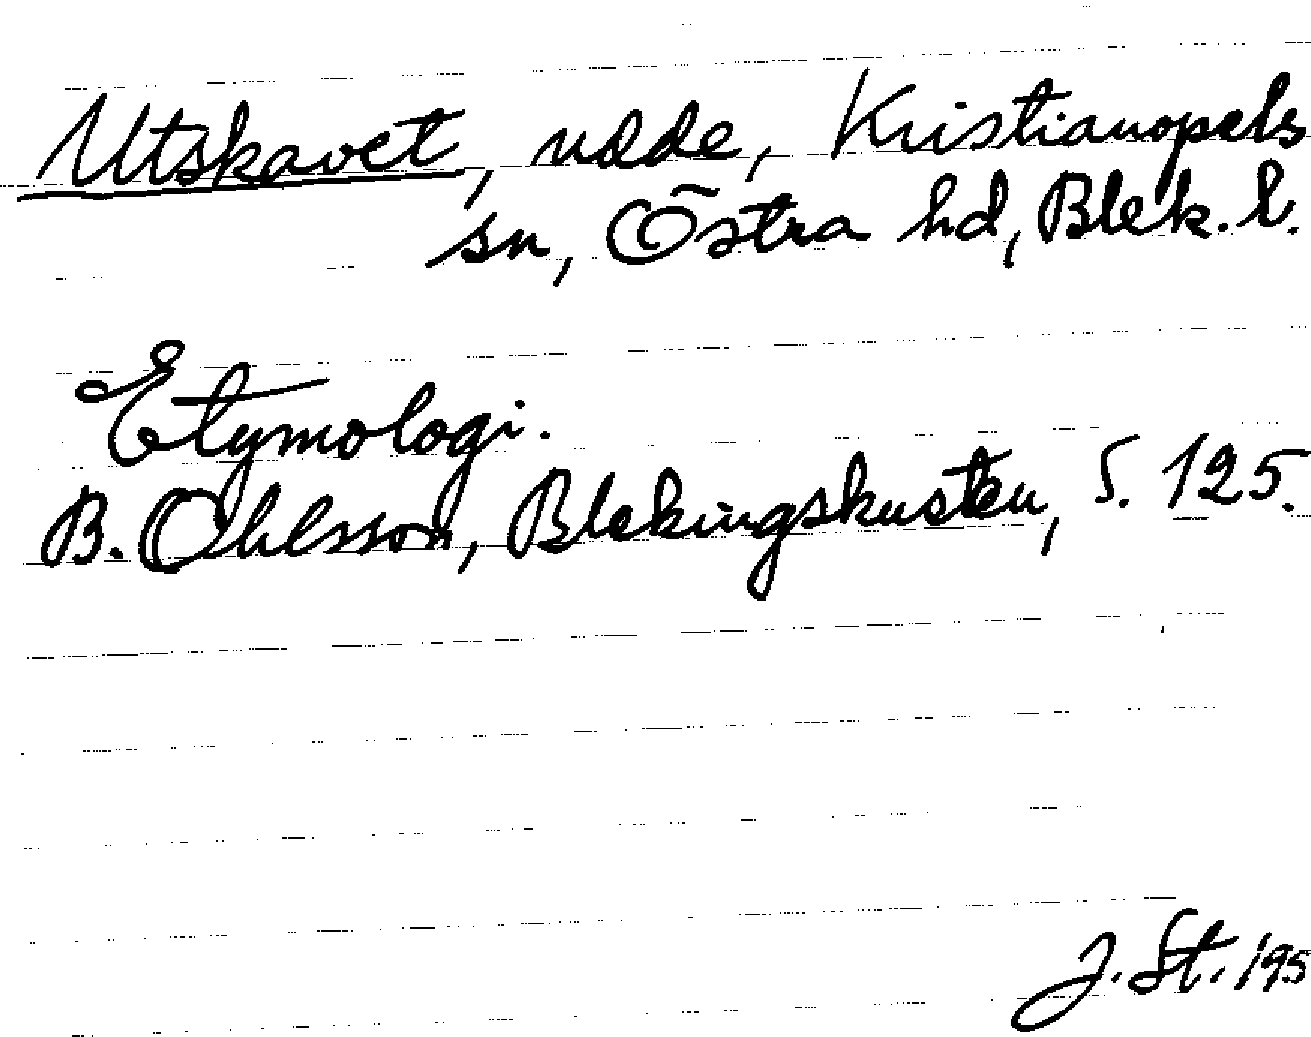 Utskavet, udde, Kristianopels
sn, Östra hd, Blek. l.
Etymologi.
B. Ohlsson, Blekingskusten, S. 125.
J. St. 195